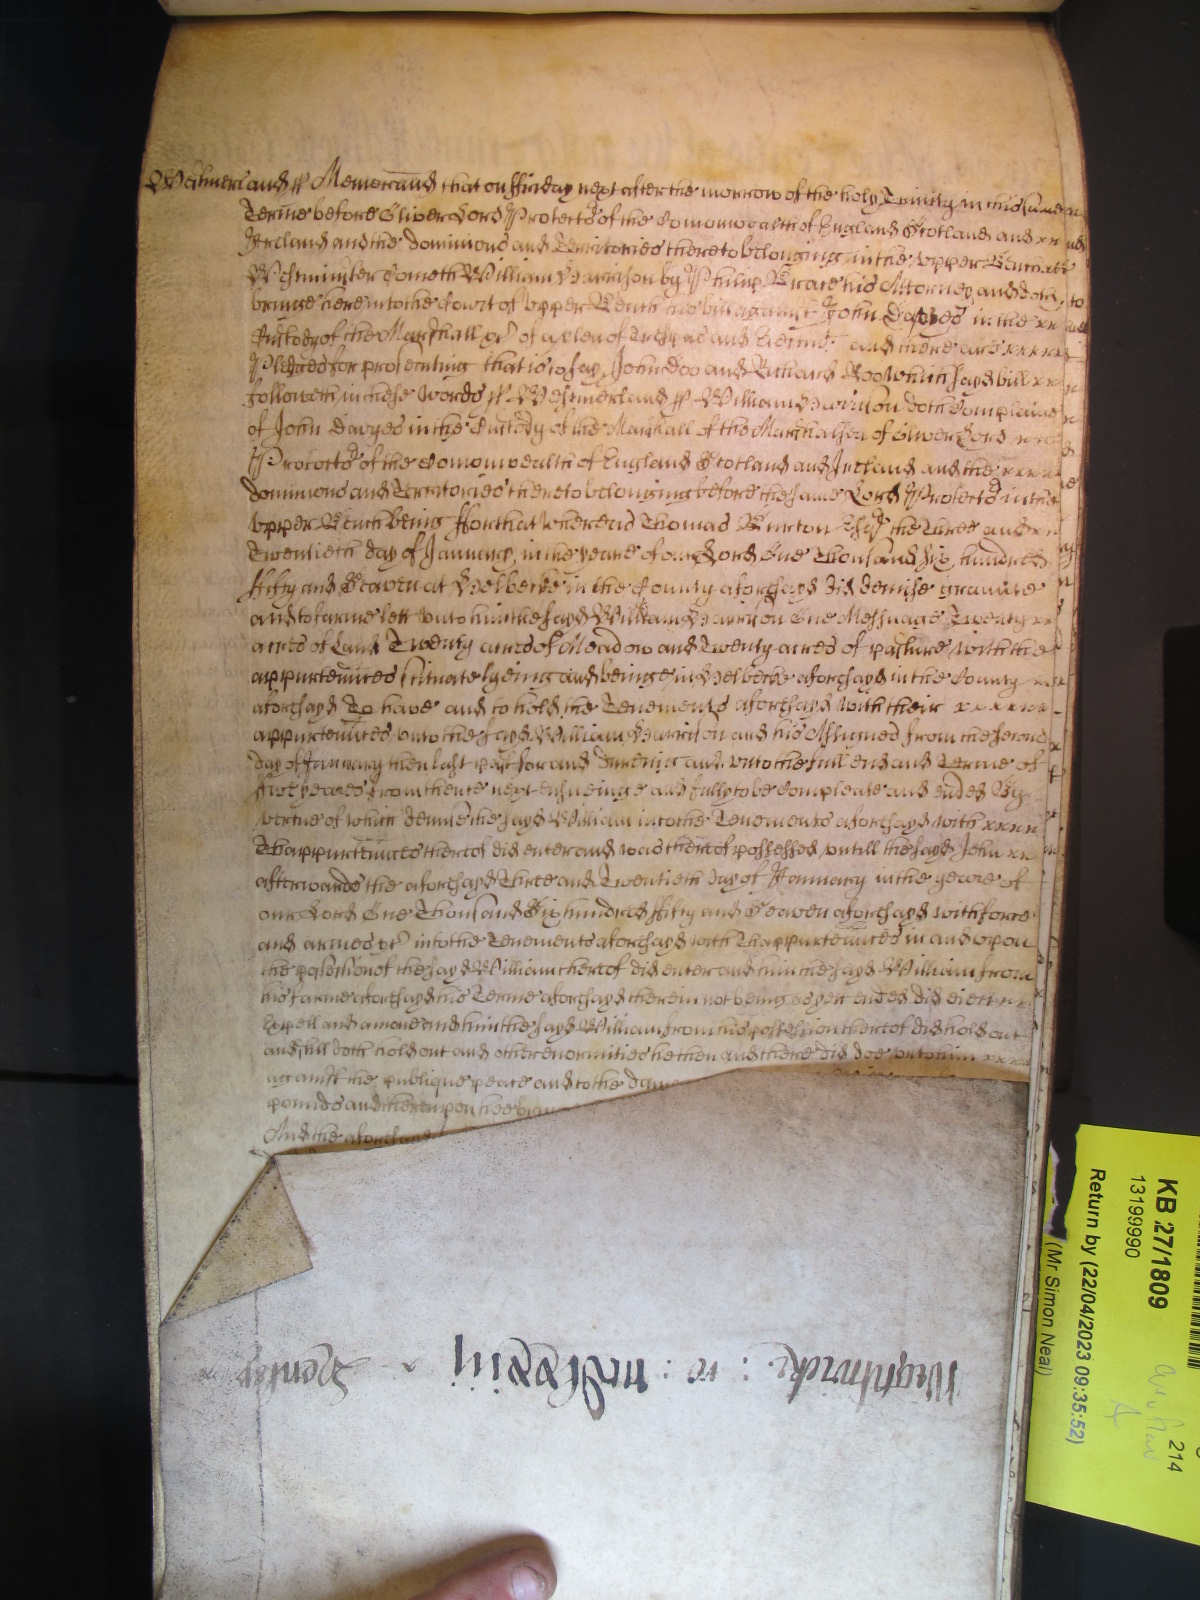 Westmerland ss Memorand that on ffriday next after the morrow of the holy Trinity in this same
Terme before Oliver Lord Protector of the Comonwealth of England Scotland and xx
Ireland and the dominions and Territories thereto belonging in the upper Bench att
Westminster Cometh William Harrison by Philip his Attorney and doth
bringe here into the Court of upper Bench his bill against John Dawges in the xx
Custody of the Marshall &c of a plea of Trespas and Eiectmt and there are xxxxx
Pledges for prosecuting that is to say John Doo and Richard Roo which sayd bill xx
followeth in these words ss Westmerland ss William Harrison doth Complaine
of John Dawges in the Custody of the Marshall of the Marshalsea of Oliver Lord
Protector of the Comonwealth of England Scotland and Ireland and the xxxxx
dominions and Territories thereto belonging before the same Lord Protector in the
upper Bench being ffor that whereas Thomas Burton the Three and
Twentieth day of January in the yeare of our Lord One Thousand six hundred
ffifty and Seaven at Helbecke in the County aforesayd did demise graunte
and to farme lett unto him the sayd William Harrison One Messuage Twenty
acres of Land Twenty acres of Meadow and Twenty acres of pasture with the
appurtenncs scituate lyeing and being in Helbecke aforesayd in the County
aforesayd To have and to hold the Tenements aforesayd with their xxxxxx
appurtenncs unto the sayd William Harrison and his Assignes from the second
day of January then last past for and dureing and unto the full end and Terme of
five yeares from thence next ensueinge and fully to be Compleate and ended By
vertue of which demise the sayd William into the Tenements aforesayd with xxxx
Thappurtenncs thereof did enter and was thereof possessed untill the sayd John xx
afterwards the aforesayd Three and Twentieth day of January in the yeare of
our Lord One Thousand Six hundred ffifty and Seaven aforesayd with force
and armes &c into the Tenements aforesayd with Thappurtenncs in and upon
the possession of the sayd William thereof did enter and him the sayd William from
his farme aforesayd his Terme aforesayd therein not being as yett ended did eiect
Expell and amove and him the sayd William from his possession thereof did hold out
and still doth hold out and other enormities he then and there did doe unto him xxxx
against the publique peace and to the
pounds and thereupon hee
And the aforesayd
Wightwicke : ro : mdlxxiij
Henley
KB 27/1809
13199990
Return by (22/04/2023 09:35:52)
(Mr Simon Neal)
214
A